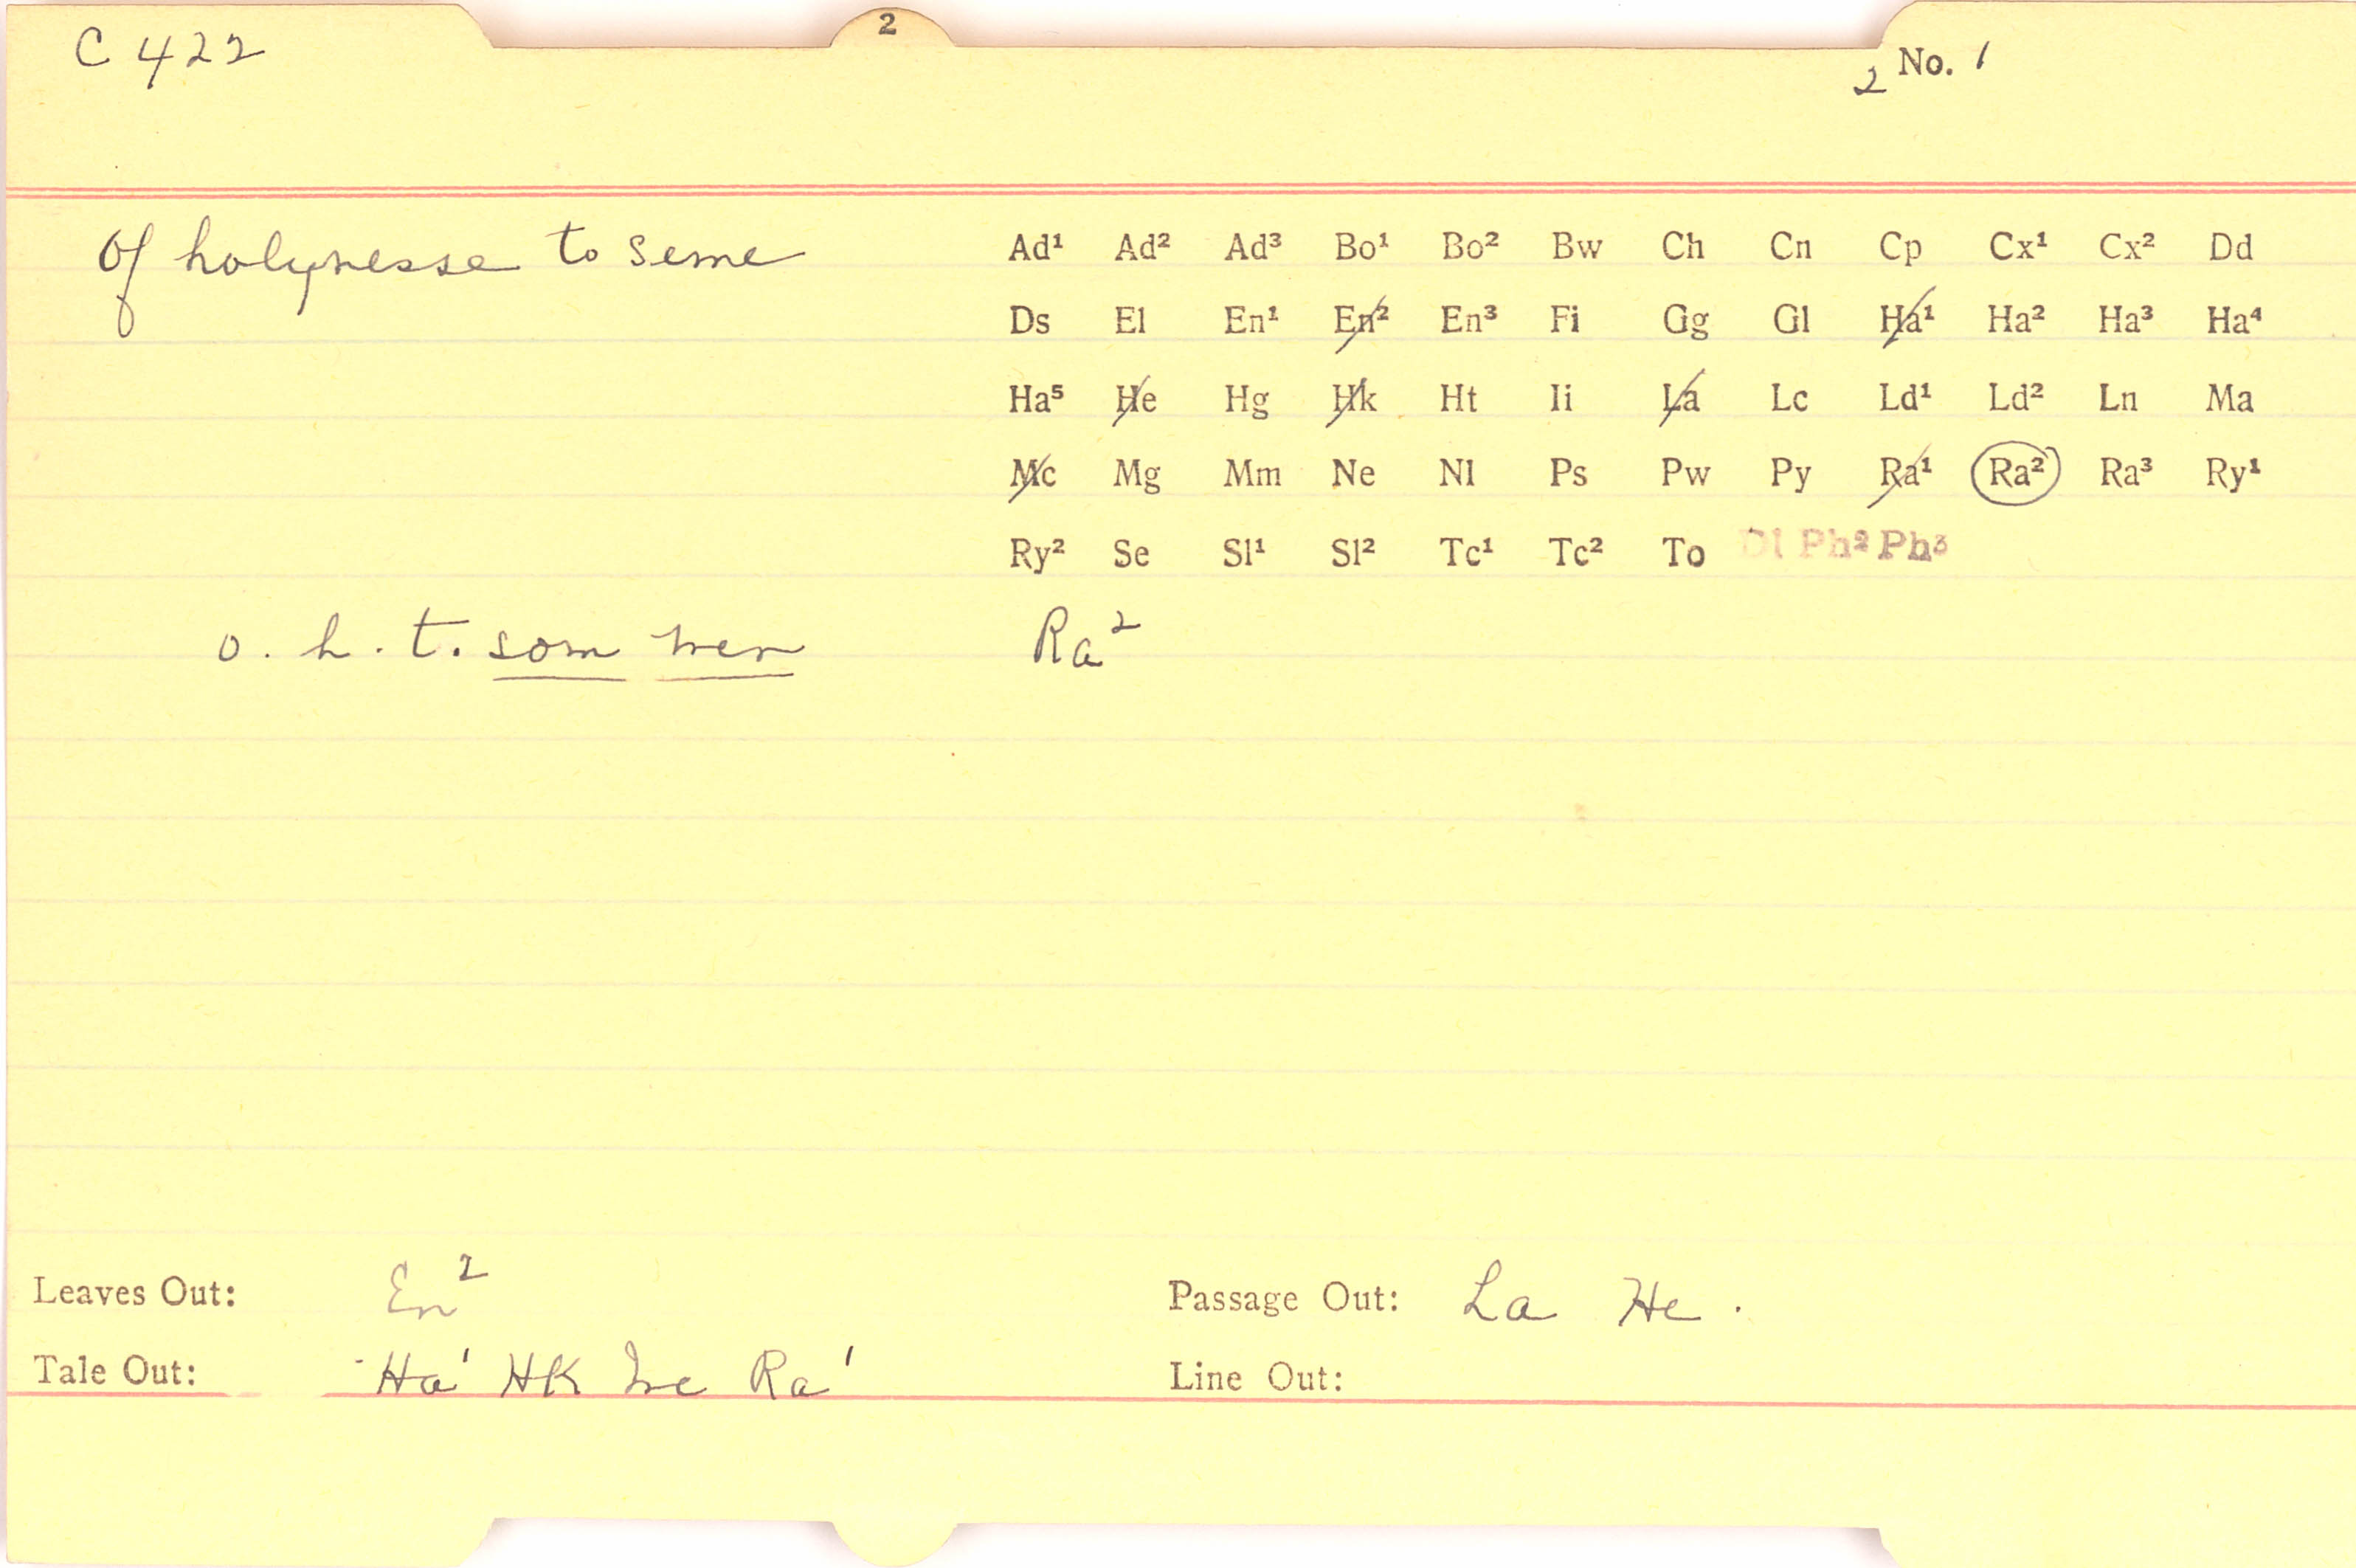 2
C 422
2 No. 1
Of holynesse to seme
Ad¹ Ad² Ad³ Bo¹ Bo² Bw Ch Cn Cp Cx¹ Cx² Dd
Ds El En¹ En² En³ Fi Gg Gl Ha¹ Ha² Ha³ Ha⁴
Ha⁵ He Hg Hk Ht Ii La Lc Ld¹ Ld² Ln Ma
Mc Mg Mm Ne Nl Ps Pw Py Ra¹ Ra² Ra³ Ry¹
Ry² Se Sl¹ Sl² Tc¹ Tc² To Dl Ph² Ph³
o. h. t. som Ra²
Leaves Out: En² Passage Out: La He.
Tale Out: Ha¹ HK Mc Ra¹ Line Out: